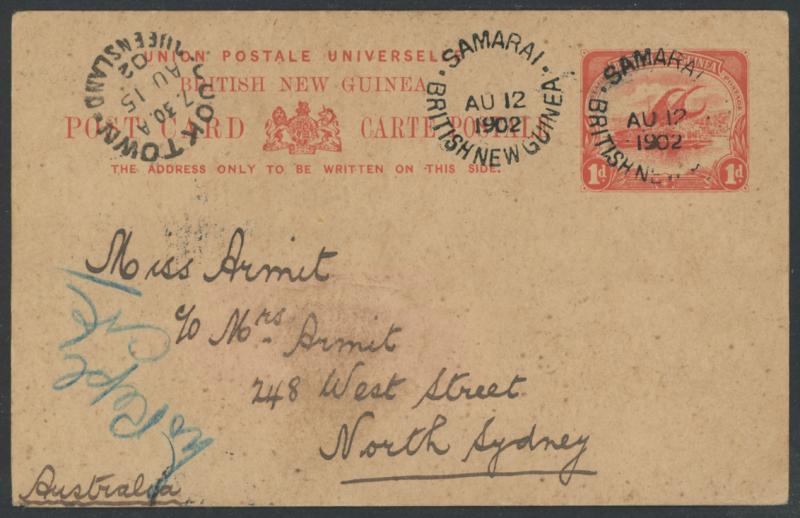 UNION POSTALE UNIVERSELLE
BRITISH NEW GUINEA
POST CARD CARTE POSTALE
THE ADDRESS ONLY TO BE WRITTEN ON THIS SIDE.
COOKTOWN
7.30 A
AU 15
02
QUEENSLAND
SAMARAI
AU 12
1902
BRITISH NEW GUINEA
SAMARAI
AU 12
1902
BRITISH NEW
GUINEA
POSTAGE
1d 1d
Miss Armit
c/o Mrs. Armit
248 West Street
North Sydney
Australia